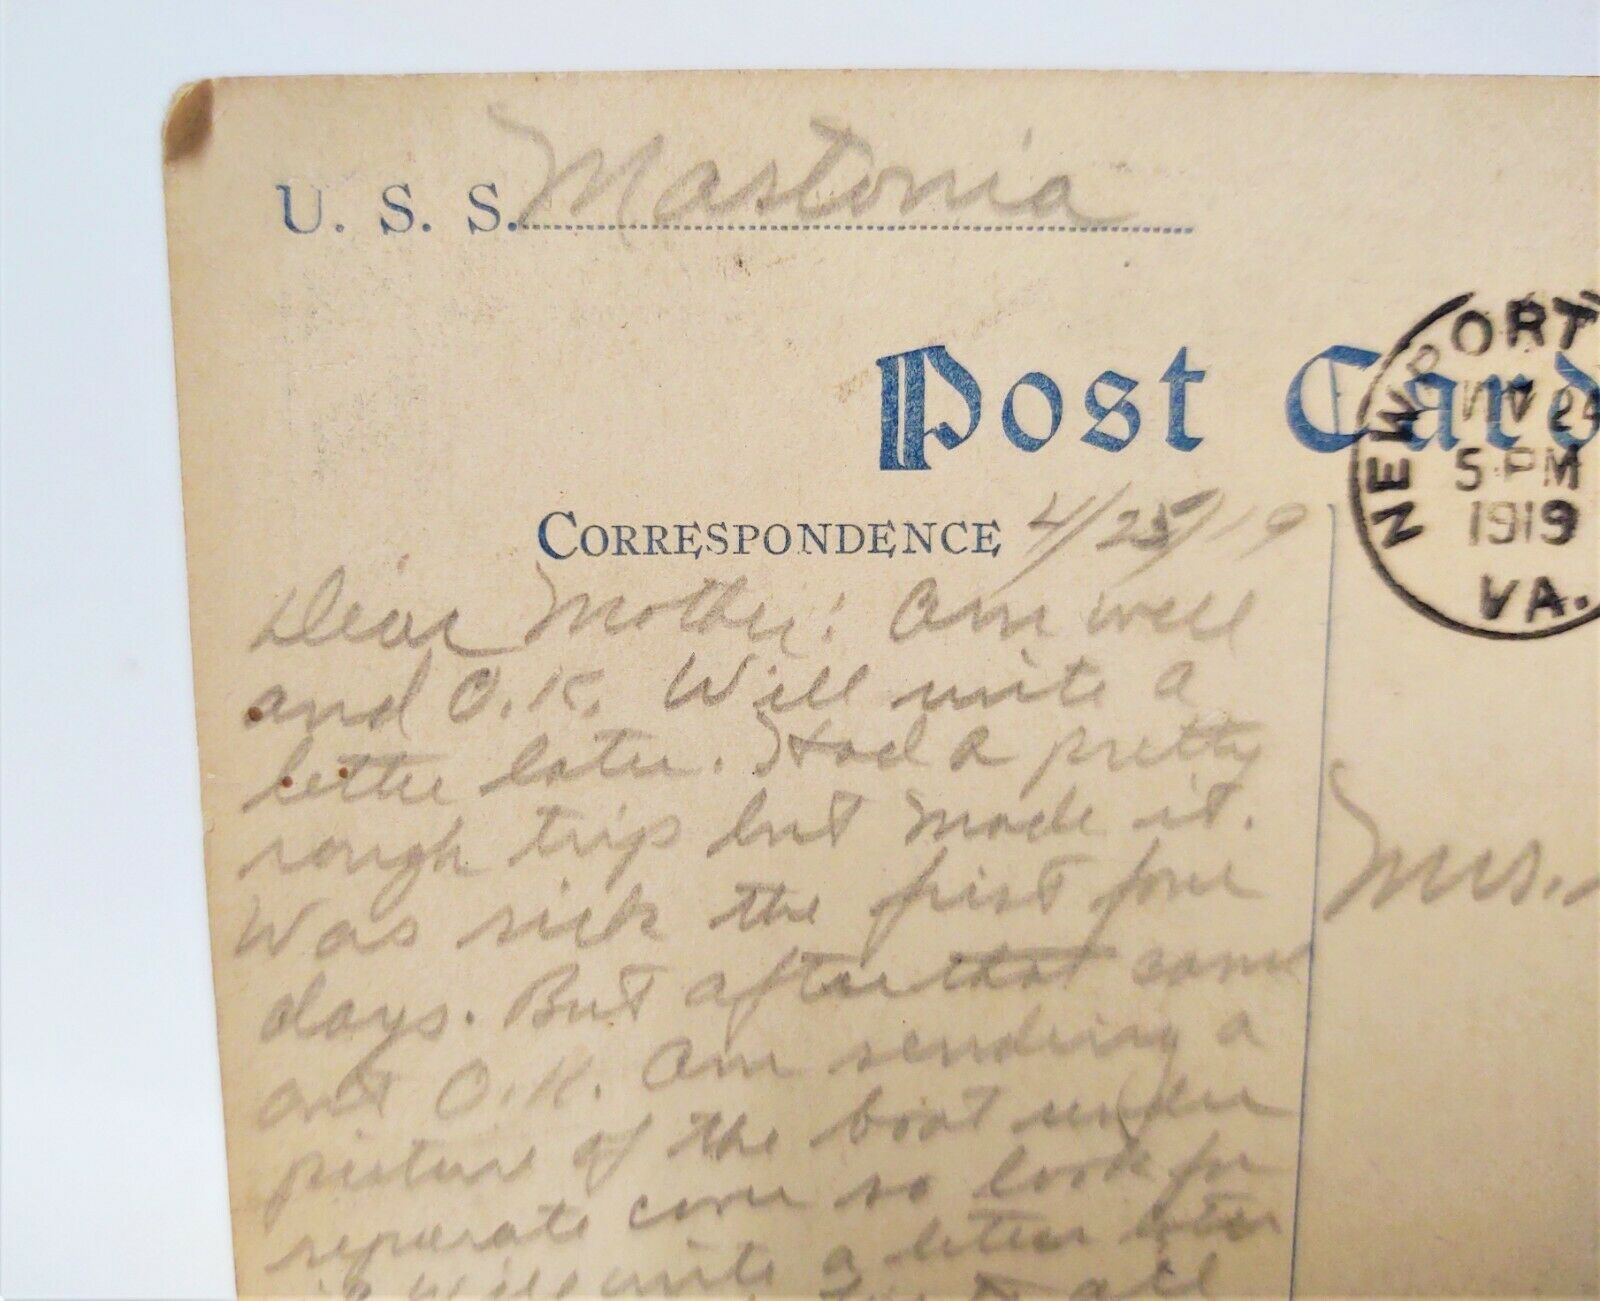 U. S. S. Mastonia
Post Card
NEWPORT
24
5 PM
1919
VA.
CORRESPONDENCE 4/25/19
Dear Mother: Am well
and O.K. Will write a
letter later. Had a pretty
rough trip but made it.
Was sick the first four
days. But after that came
out O.K. Am sending a
picture of the boat under
separate cover so look for
it Will write a letter later
all
Mrs.